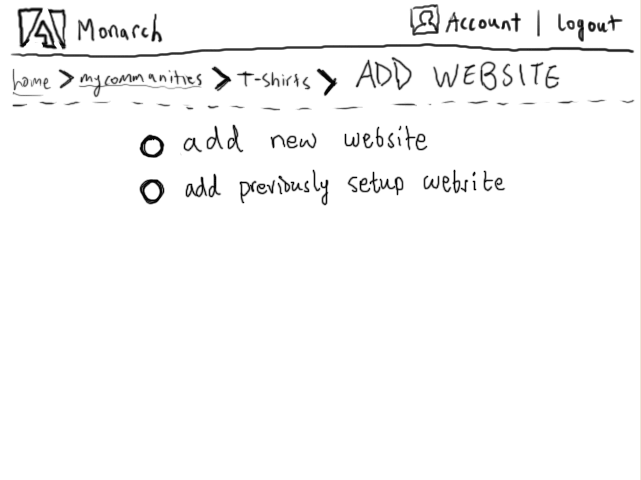 Monarch Account | Logout
home > mycommunities > T-shirts > ADD WEBSITE
add new website
add previously setup website